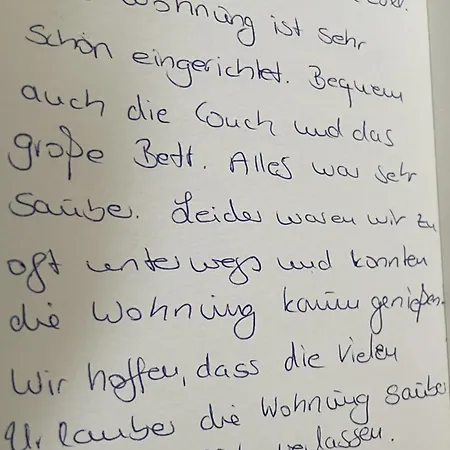 Wohnung ist sehr
schön eingerichtet. Bequem
auch die Couch und das
große Bett. Alles war sehr
sauber. Leider waren wir zu
oft unterwegs und konnten
die Wohnung kaum genießen.
Wir hoffen, dass die vielen
Urlauber die Wohnung sauber
verlassen.